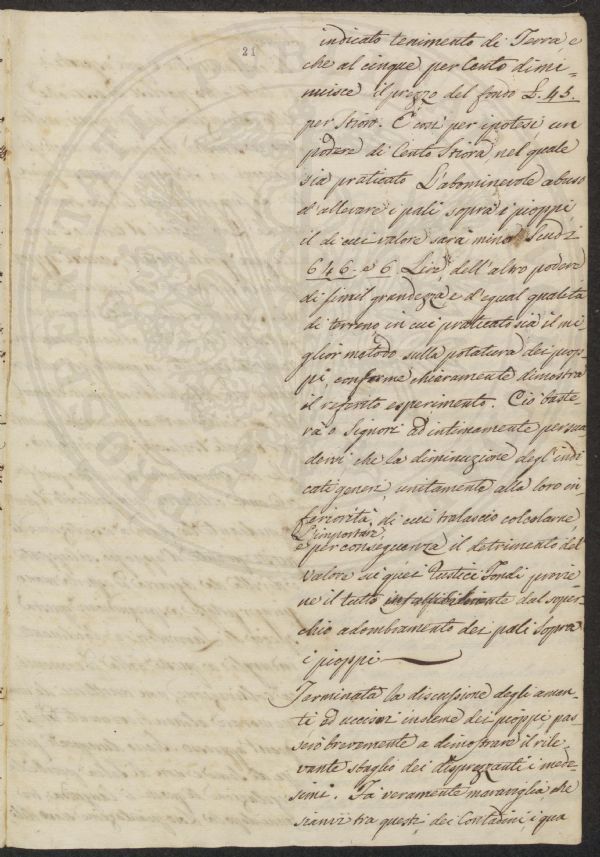 21
indicato tenimento di Terra e
che al cinque per Cento dimi=
nuisce il prezzo del fondo £. 45.
per Stioro. E così per ipotesi un
podere di Cento Stiora nel quale
sia praticato L'abominevole abuso
d'allevare i pali sopra i pioppi
il di cui valore sarà minor Scudi
646. e 6 Lire dell'altro podere
di simil grandezza e d'egual qualità
di terreno in cui praticato sia il mi=
glior metodo sulla potatura dei piop=
pi, conforme chiaramente dimostra
il referito esperimento. Ciò baste=
rà o Signori ad intimamente persua
dervi che la diminuzione degl'indi
cati generi, unitamente alla loro in=
feriorità, di cui tralascio colcolarne
L'importare,
e per conseguenza il detrimento del
valore di quei Rustici Fondi provie
ne il tutto infallibilmente dal soper=
chio adombramento dei pali sopra
i pioppi
Terminata la discussione degli aman=
ti ed uccisori insieme dei pioppi pas
serò brevemente a dimostrare il rile=
vante sbaglio dei disprezzanti i mede=
simi. Fa veramente maraviglia che
sianvi tra questi dei Contadini, i qua